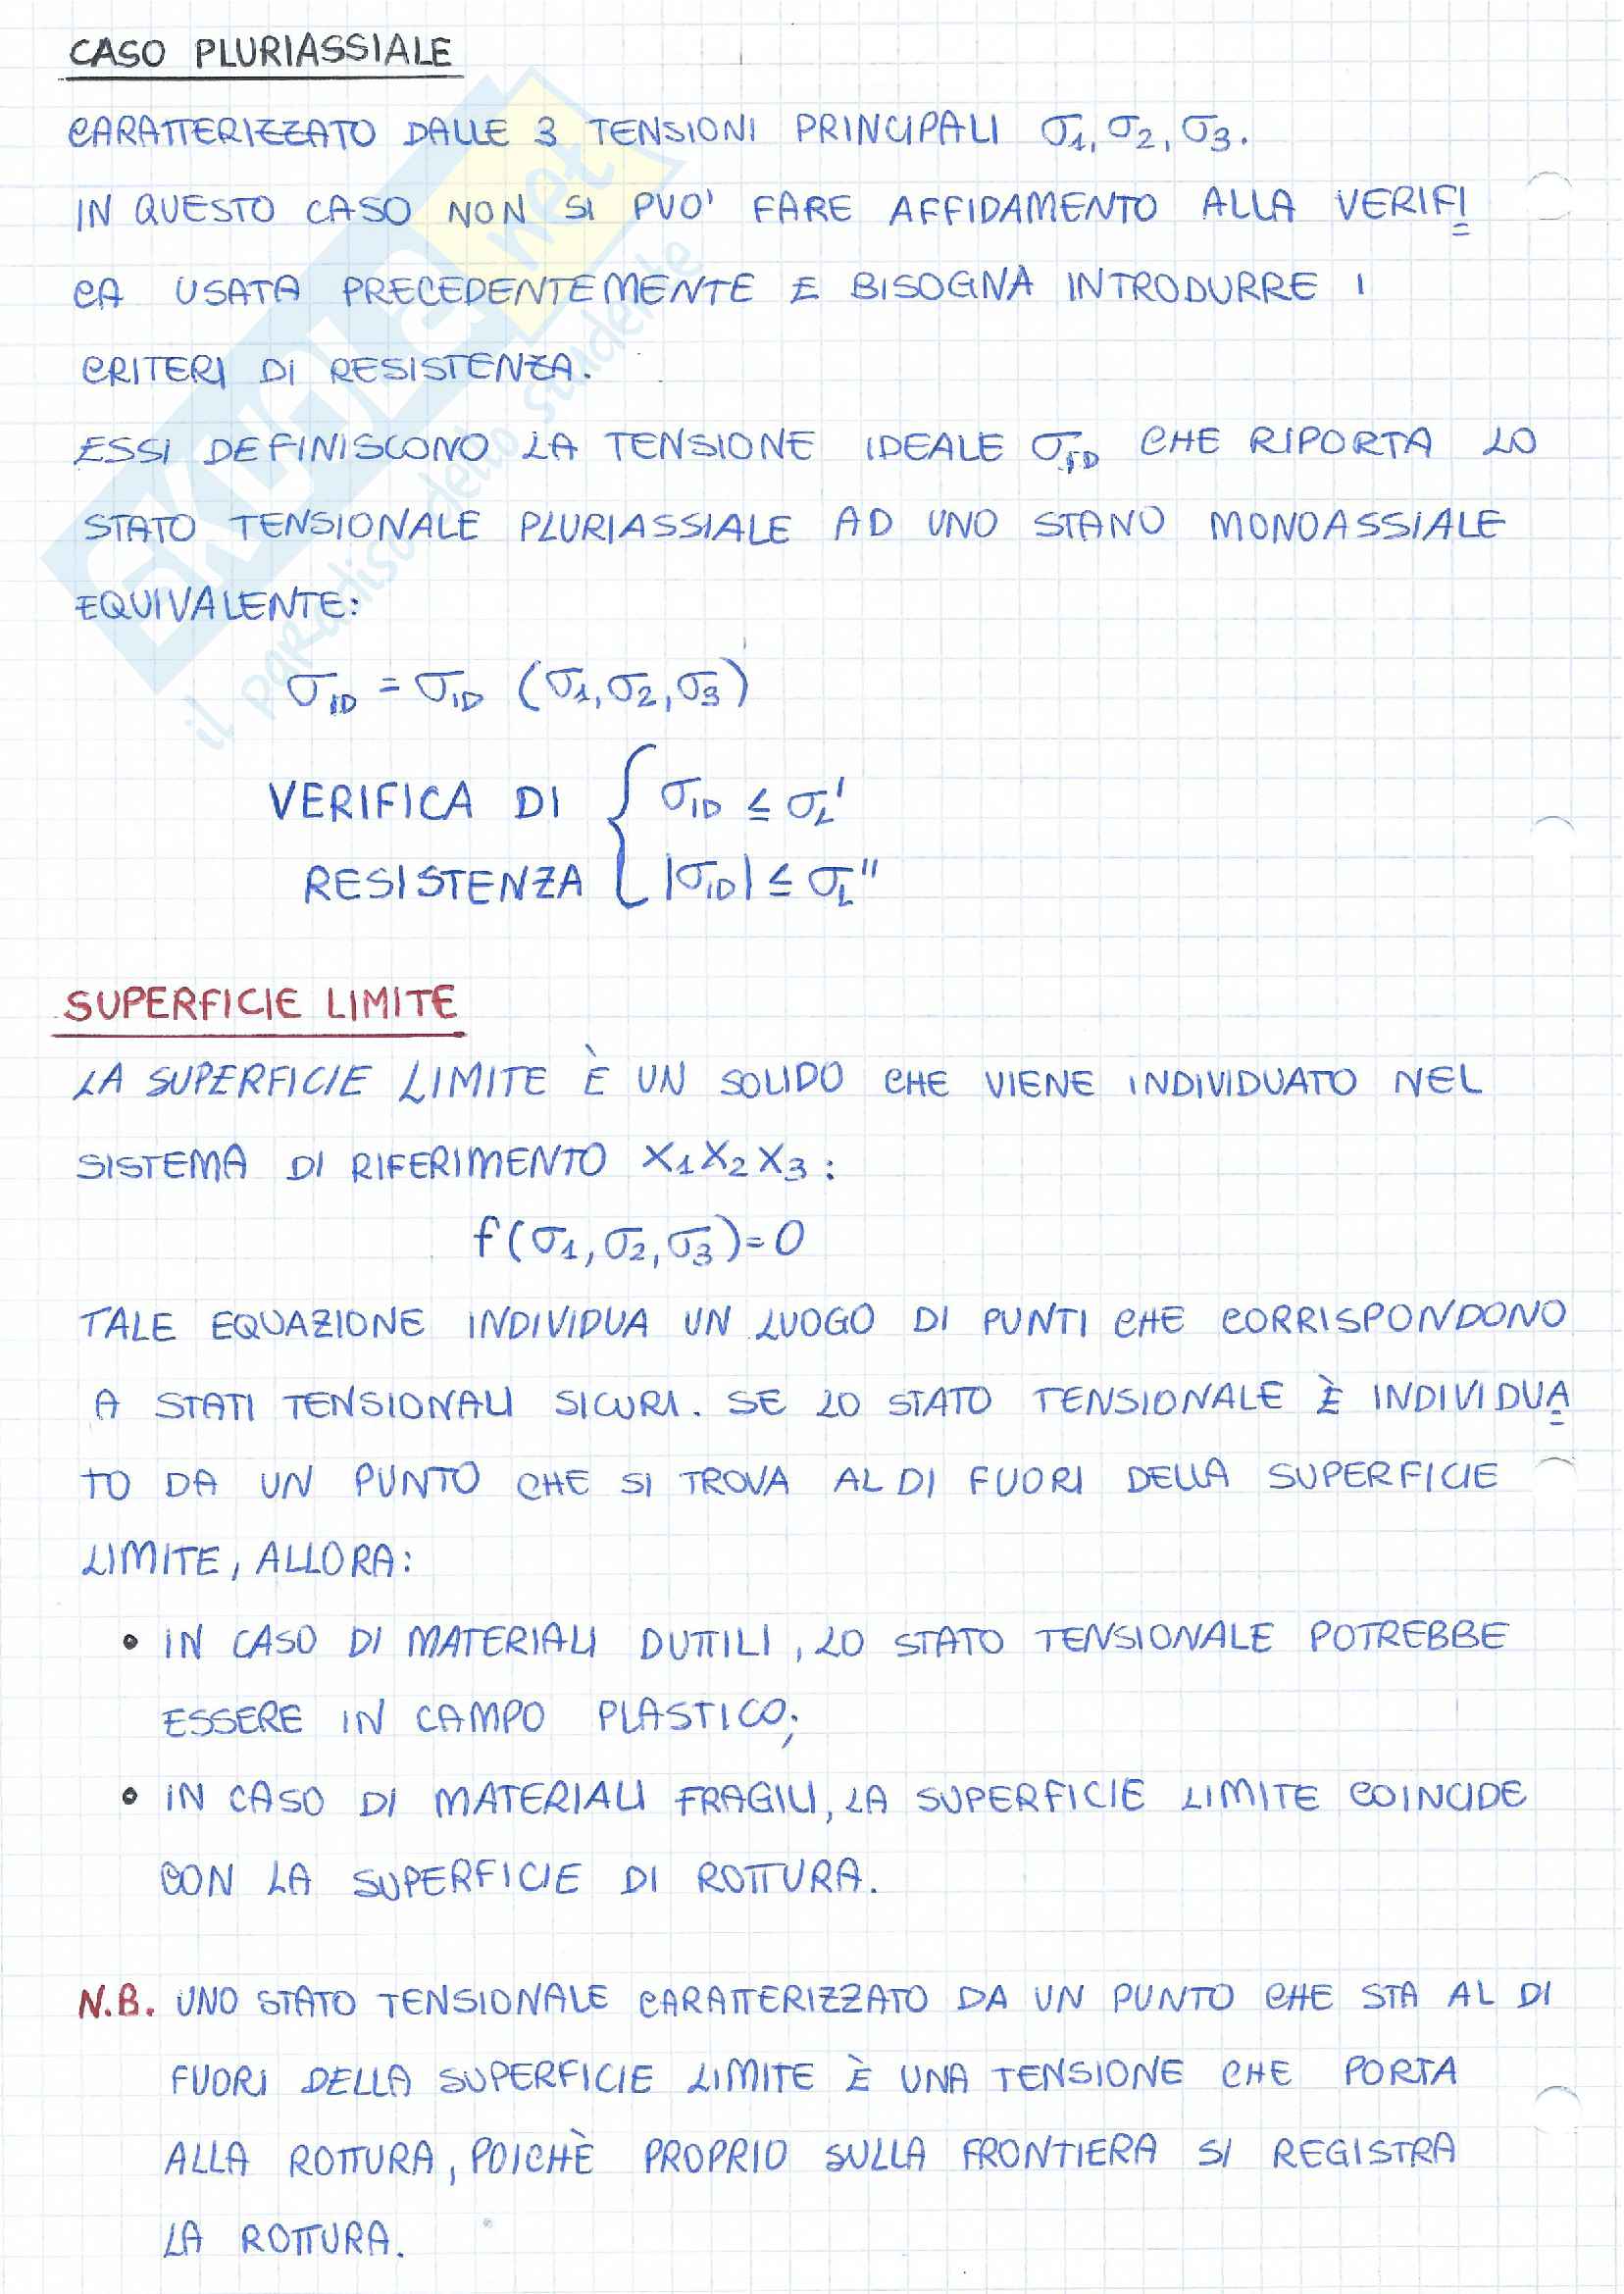 CASO PLURIASSIALE
CARATTERIZZATO DALLE 3 TENSIONI PRINCIPALI σ1, σ2, σ3.
IN QUESTO CASO NON SI PUO' FARE AFFIDAMENTO ALLA VERIFI
CA USATA PRECEDENTEMENTE E BISOGNA INTRODURRE I
CRITERI DI RESISTENZA.
ESSI DEFINISCONO LA TENSIONE IDEALE σID CHE RIPORTA LO
STATO TENSIONALE PLURIASSIALE AD UNO STANO MONOASSIALE
EQUIVALENTE:
σID = σID (σ1, σ2, σ3)
VERIFICA DI { σID ≤ σL'
RESISTENZA { |σID| ≤ σL''
SUPERFICIE LIMITE
LA SUPERFICIE LIMITE È UN SOLIDO CHE VIENE INDIVIDUATO NEL
SISTEMA DI RIFERIMENTO X1X2X3:
f(σ1, σ2, σ3)=0
TALE EQUAZIONE INDIVIDUA UN LUOGO DI PUNTI CHE CORRISPONDONO
A STATI TENSIONALI SICURI. SE LO STATO TENSIONALE È INDIVIDUA
TO DA UN PUNTO CHE SI TROVA AL DI FUORI DELLA SUPERFICIE
LIMITE, ALLORA:
• IN CASO DI MATERIALI DUTTILI, LO STATO TENSIONALE POTREBBE
ESSERE IN CAMPO PLASTICO;
• IN CASO DI MATERIALI FRAGILI, LA SUPERFICIE LIMITE COINCIDE
CON LA SUPERFICIE DI ROTTURA.
N.B. UNO STATO TENSIONALE CARATTERIZZATO DA UN PUNTO CHE STA AL DI
FUORI DELLA SUPERFICIE LIMITE È UNA TENSIONE CHE PORTA
ALLA ROTTURA, POICHÈ PROPRIO SULLA FRONTIERA SI REGISTRA
LA ROTTURA.
SKUOLA.net
il paradiso dello studente